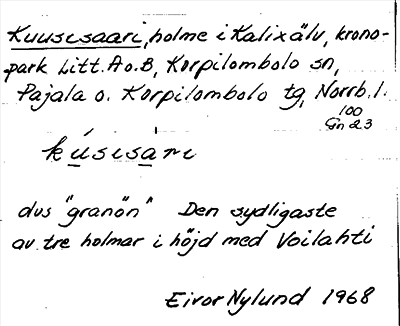 Kuusisaari, holme i Kalixälv, krono-
park Litt. A o. B, Korpilombolo sn,
Pajala o. Korpilombolo tg, Norrb. l.
100
Gn 23
kúsisàri
dvs "granön" Den sydligaste
av tre holmar i höjd med Voilahti
Eivor Nylund 1968